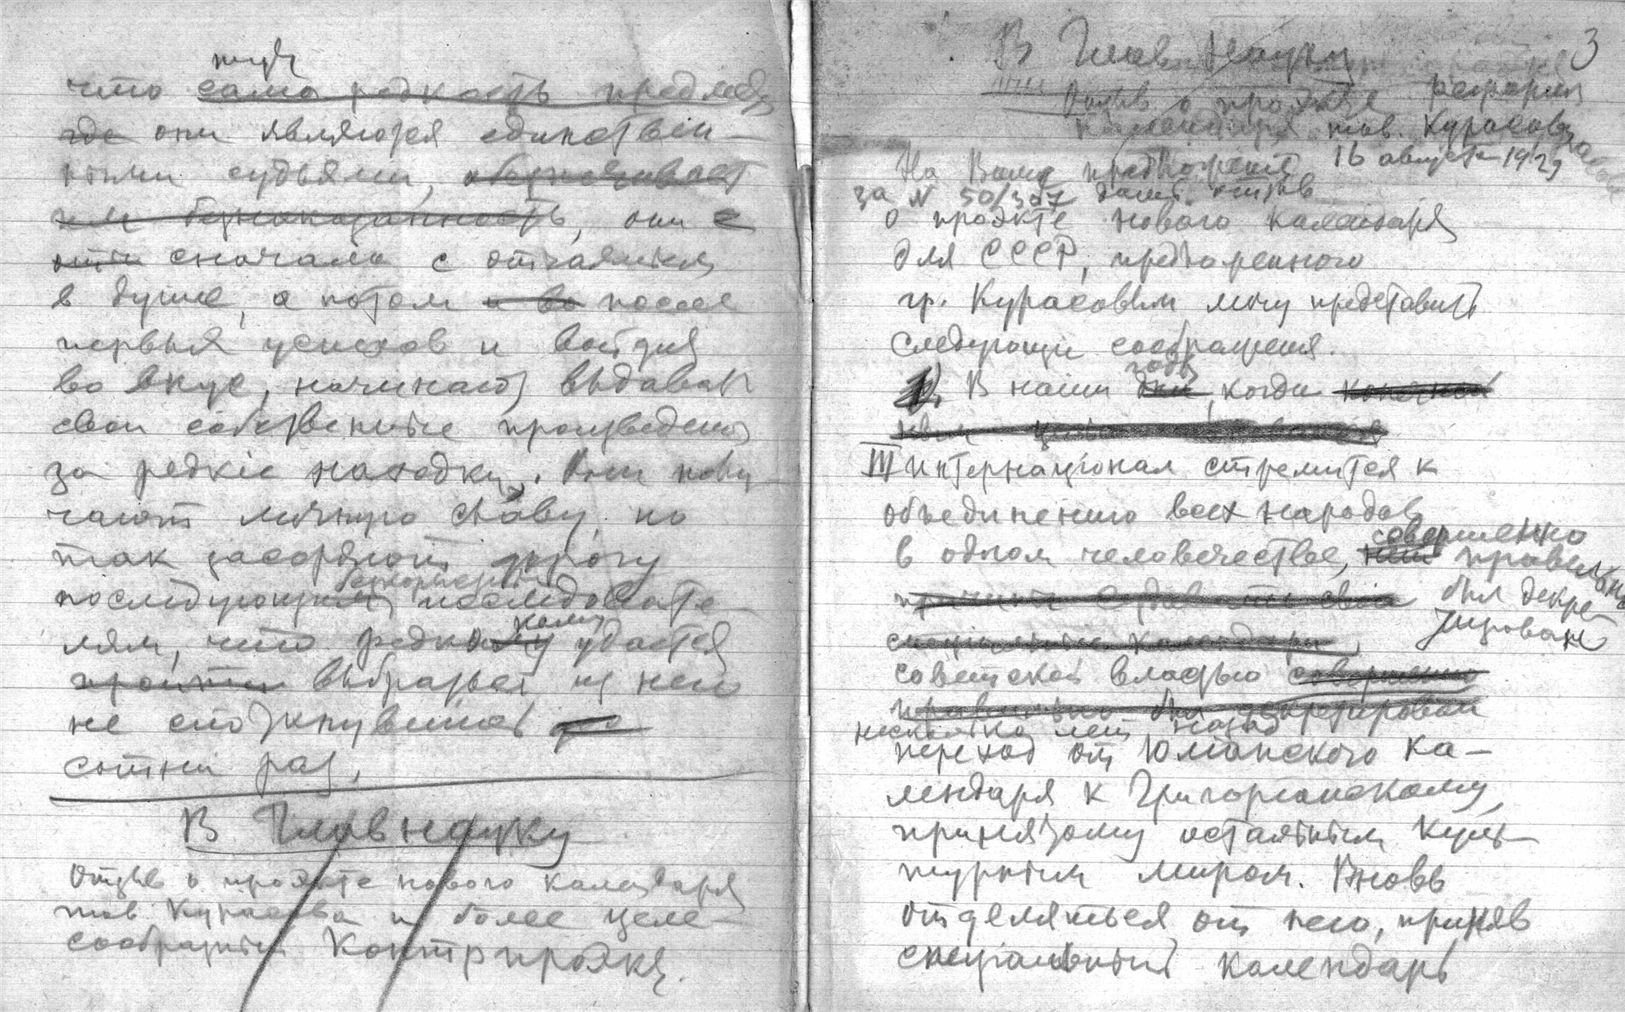 что само редкость предмета
где они являются единствен-
ными судьями, обезпечивает
им безнаказанность, они с
сначала с отчаяньем
в душе, а потом и во после
первых успехов и войдя
во вкус, начинают выдавать
свои собственные произведения
за редкие находки. Они полу-
чают личную славу, но
так засоряют дорогу
бескорыстным
последующим исследовате-
лям, что редко кому удается
пройти выбраться из нее
не споткнувшись
сотни раз.
В Главнауку
Отзыв о проэкте нового календаря
тов. Курасова и более целе-
сообразный контрпроэкт.
3
В Главнауку
Отзыв о проэкте реформы
календаря тов. Курасова
На Ваше предложение 16 августа 1929
за N 50/307 дать отзыв
о проэкте нового календаря
для СССР, предложенного
гр. Курасовым могу представить
следующие соображения.
годы
1. В наши дни, когда
III Интернационал стремится к
объединению всех народов
в одном человечестве, совершенно
правильно
был декре-
тирован
специальные календари
советской властью совершенно
правильно был декретирован
несколько лет назад
переход от Юлианского ка-
лендаря к Григорианскому,
принятому остальным куль-
турным миром. Вновь
отделяться от него, приняв
специальный календарь